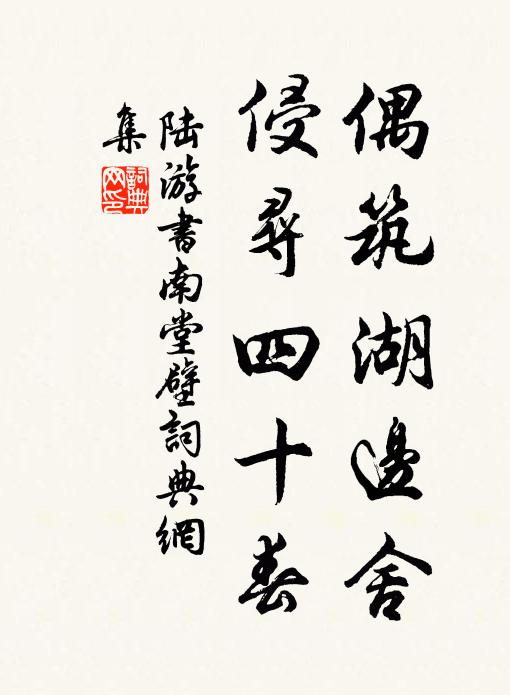 偶筑湖邊舍
侵尋四十春
陆游書南堂壁詞典網
集
詞典
网印